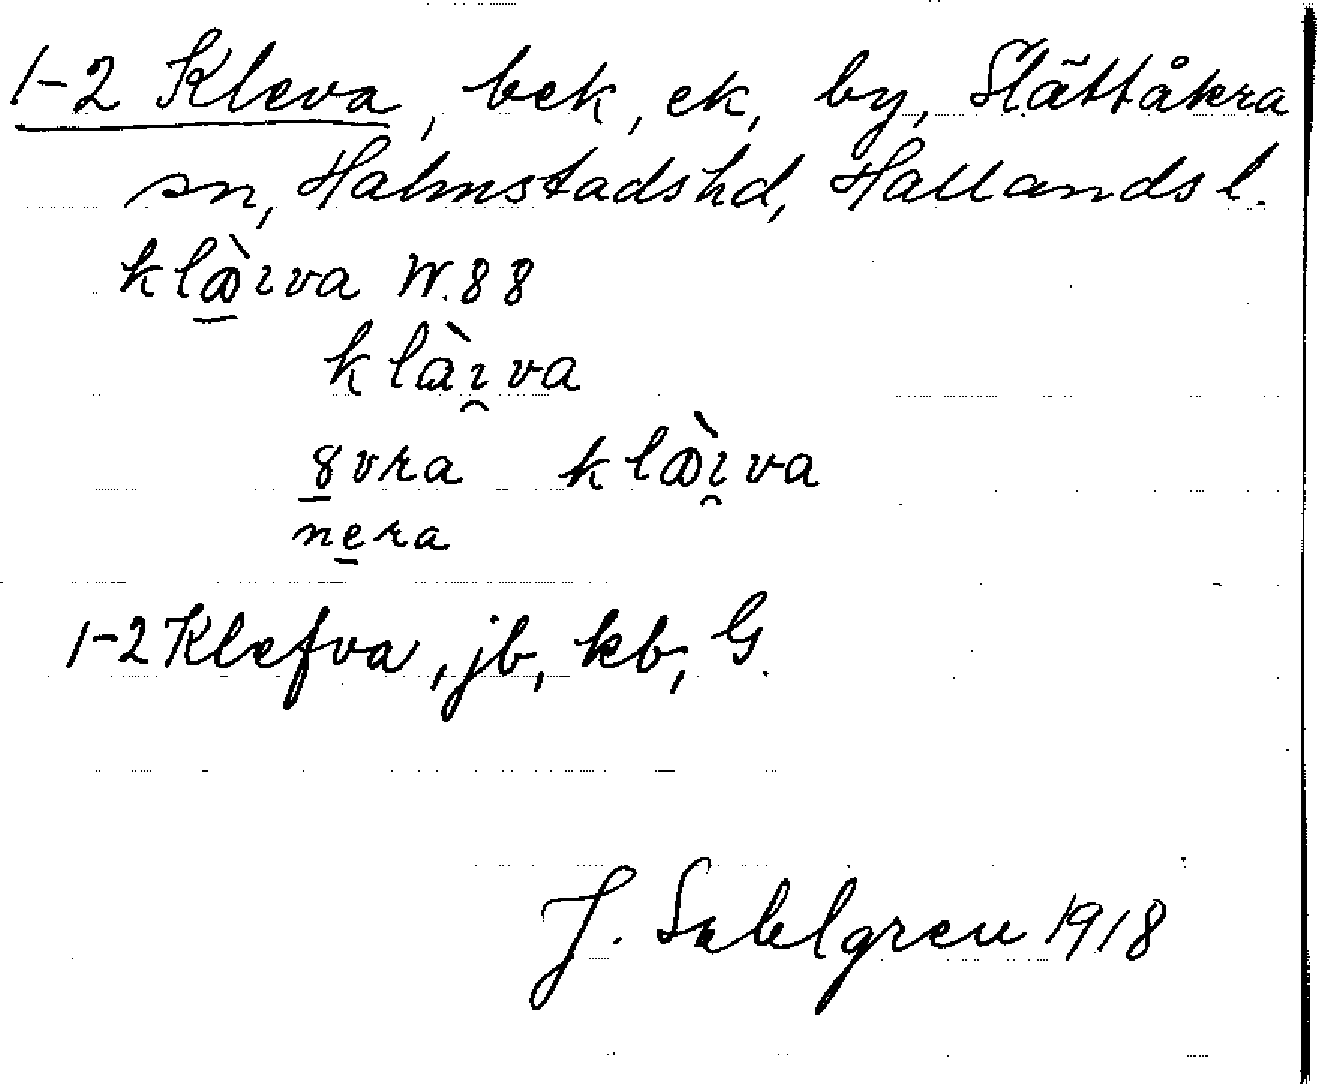 1-2 Kleva, bek, ek, by, Slättåkra
sn, Halmstadshd, Hallands l.
klæ̀ɪva W.88
klàɪ̯va
8vra klæ̀ɪ̯va
nera
1-2 Klefva, jb, kb, G.
J. Sahlgren 1918